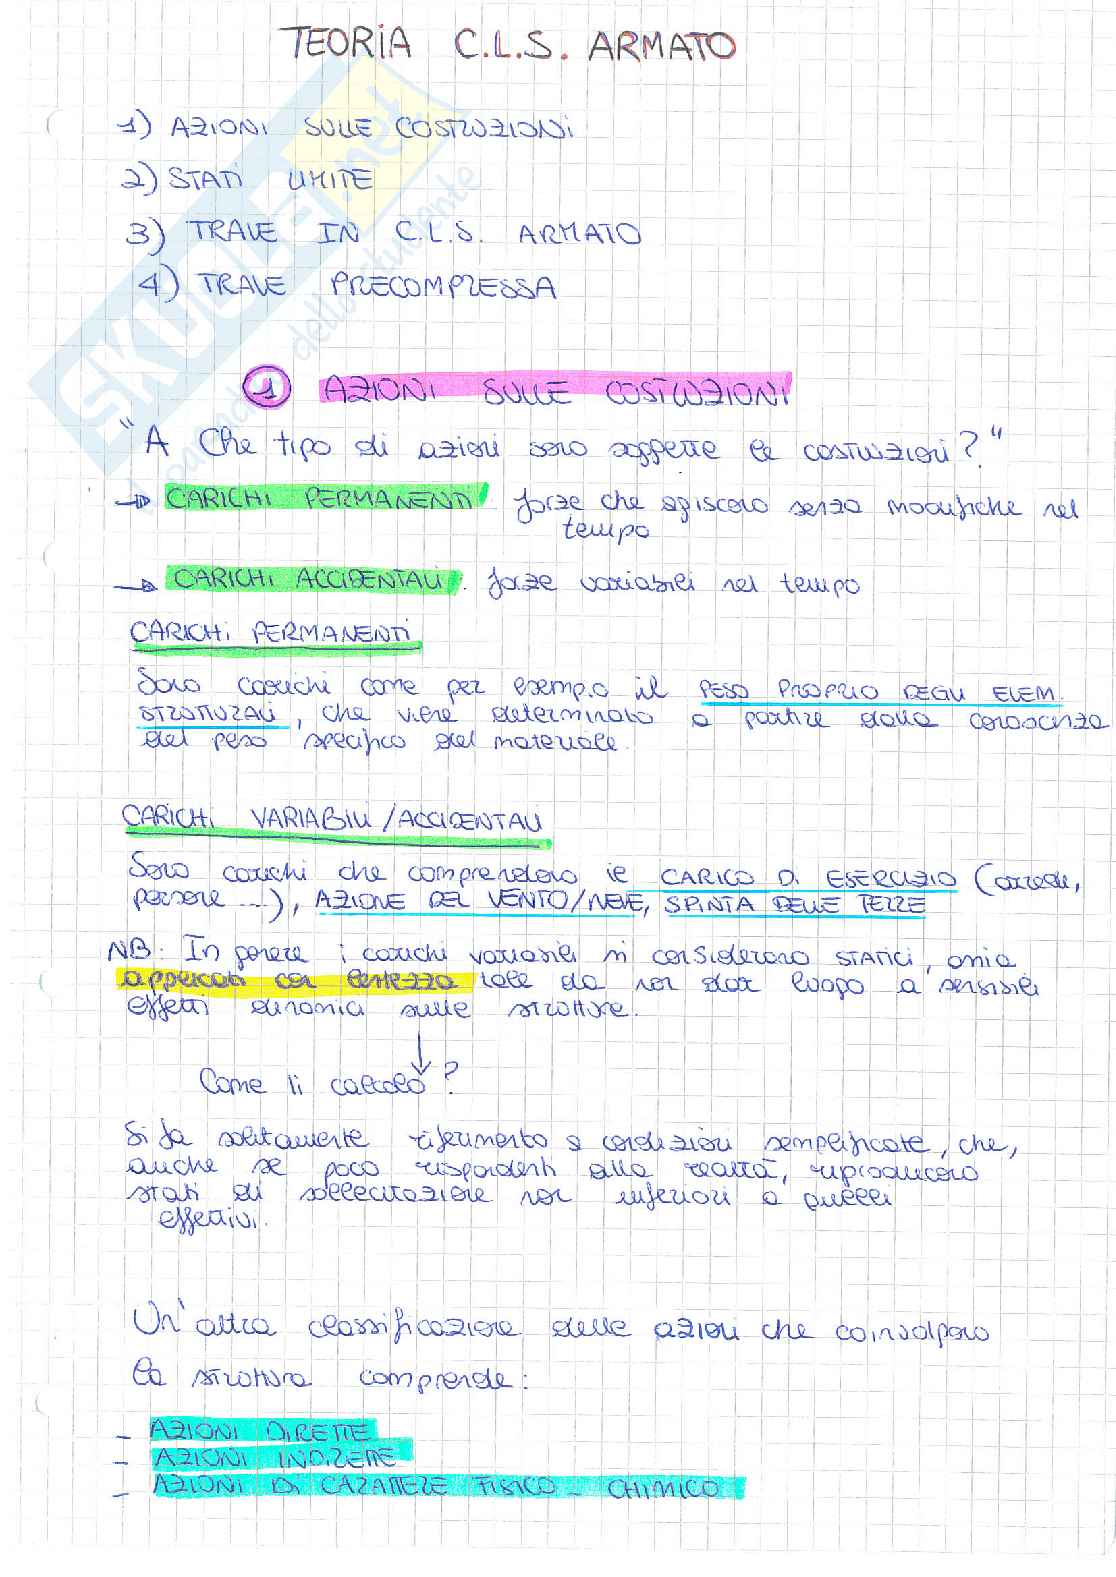 TEORIA C.L.S. ARMATO
1) AZIONI SULLE COSTRUZIONI
2) STATI LIMITE
3) TRAVE IN C.L.S. ARMATO
4) TRAVE PRECOMPRESSA
1 AZIONI SULLE COSTRUZIONI
"A Che tipo di azioni sono soggette le costruzioni?"
→ CARICHI PERMANENTI forze che agiscono senza modifiche nel
tempo
→ CARICHI ACCIDENTALI: forze variabili nel tempo
CARICHI PERMANENTI
Sono carichi come per esempio il PESO PROPRIO DEGLI ELEM.
STRUTTURALI, che viene determinato a partire dalla conoscenza
del peso specifico del materiale.
CARICHI VARIABILI/ACCIDENTALI
Sono carichi che comprendono il CARICO DI ESERCIZIO (arredi,
persone ...), AZIONE DEL VENTO/NEVE, SPINTA DELLE TERRE
NB: In genere i carichi variabili si considerano STATICI, ossia
applicati con lentezza tale da non dar luogo a sensibili
effetti dinamici sulle strutture.
Come li calcolo?
Si fa solitamente riferimento a condizioni semplificate, che,
anche se poco rispondenti alla realtà, riproducono
stati di sollecitazione non inferiori a quelli
effettivi.
Un'altra classificazione delle azioni che coinvolgono
la struttura comprende:
- AZIONI DIRETTE
- AZIONI INDIRETTE
- AZIONI DI CARATTERE FISICO-CHIMICO
SKUOLA.net